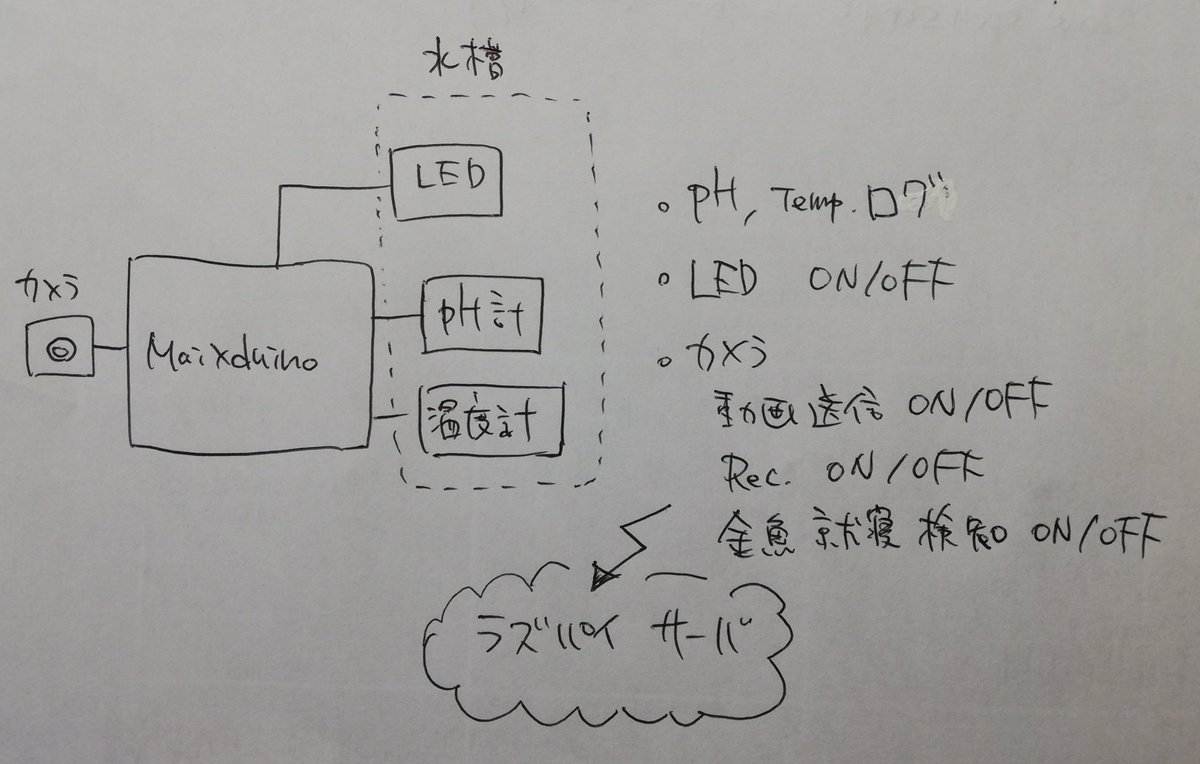 水槽
LED
カメラ
Maixduino
pH計
温度計
。pH, Temp. ログ
。LED ON/OFF
。カメラ
動画送信 ON/OFF
Rec. ON/OFF
金魚就寝検知 ON/OFF
ラズパイ サーバ